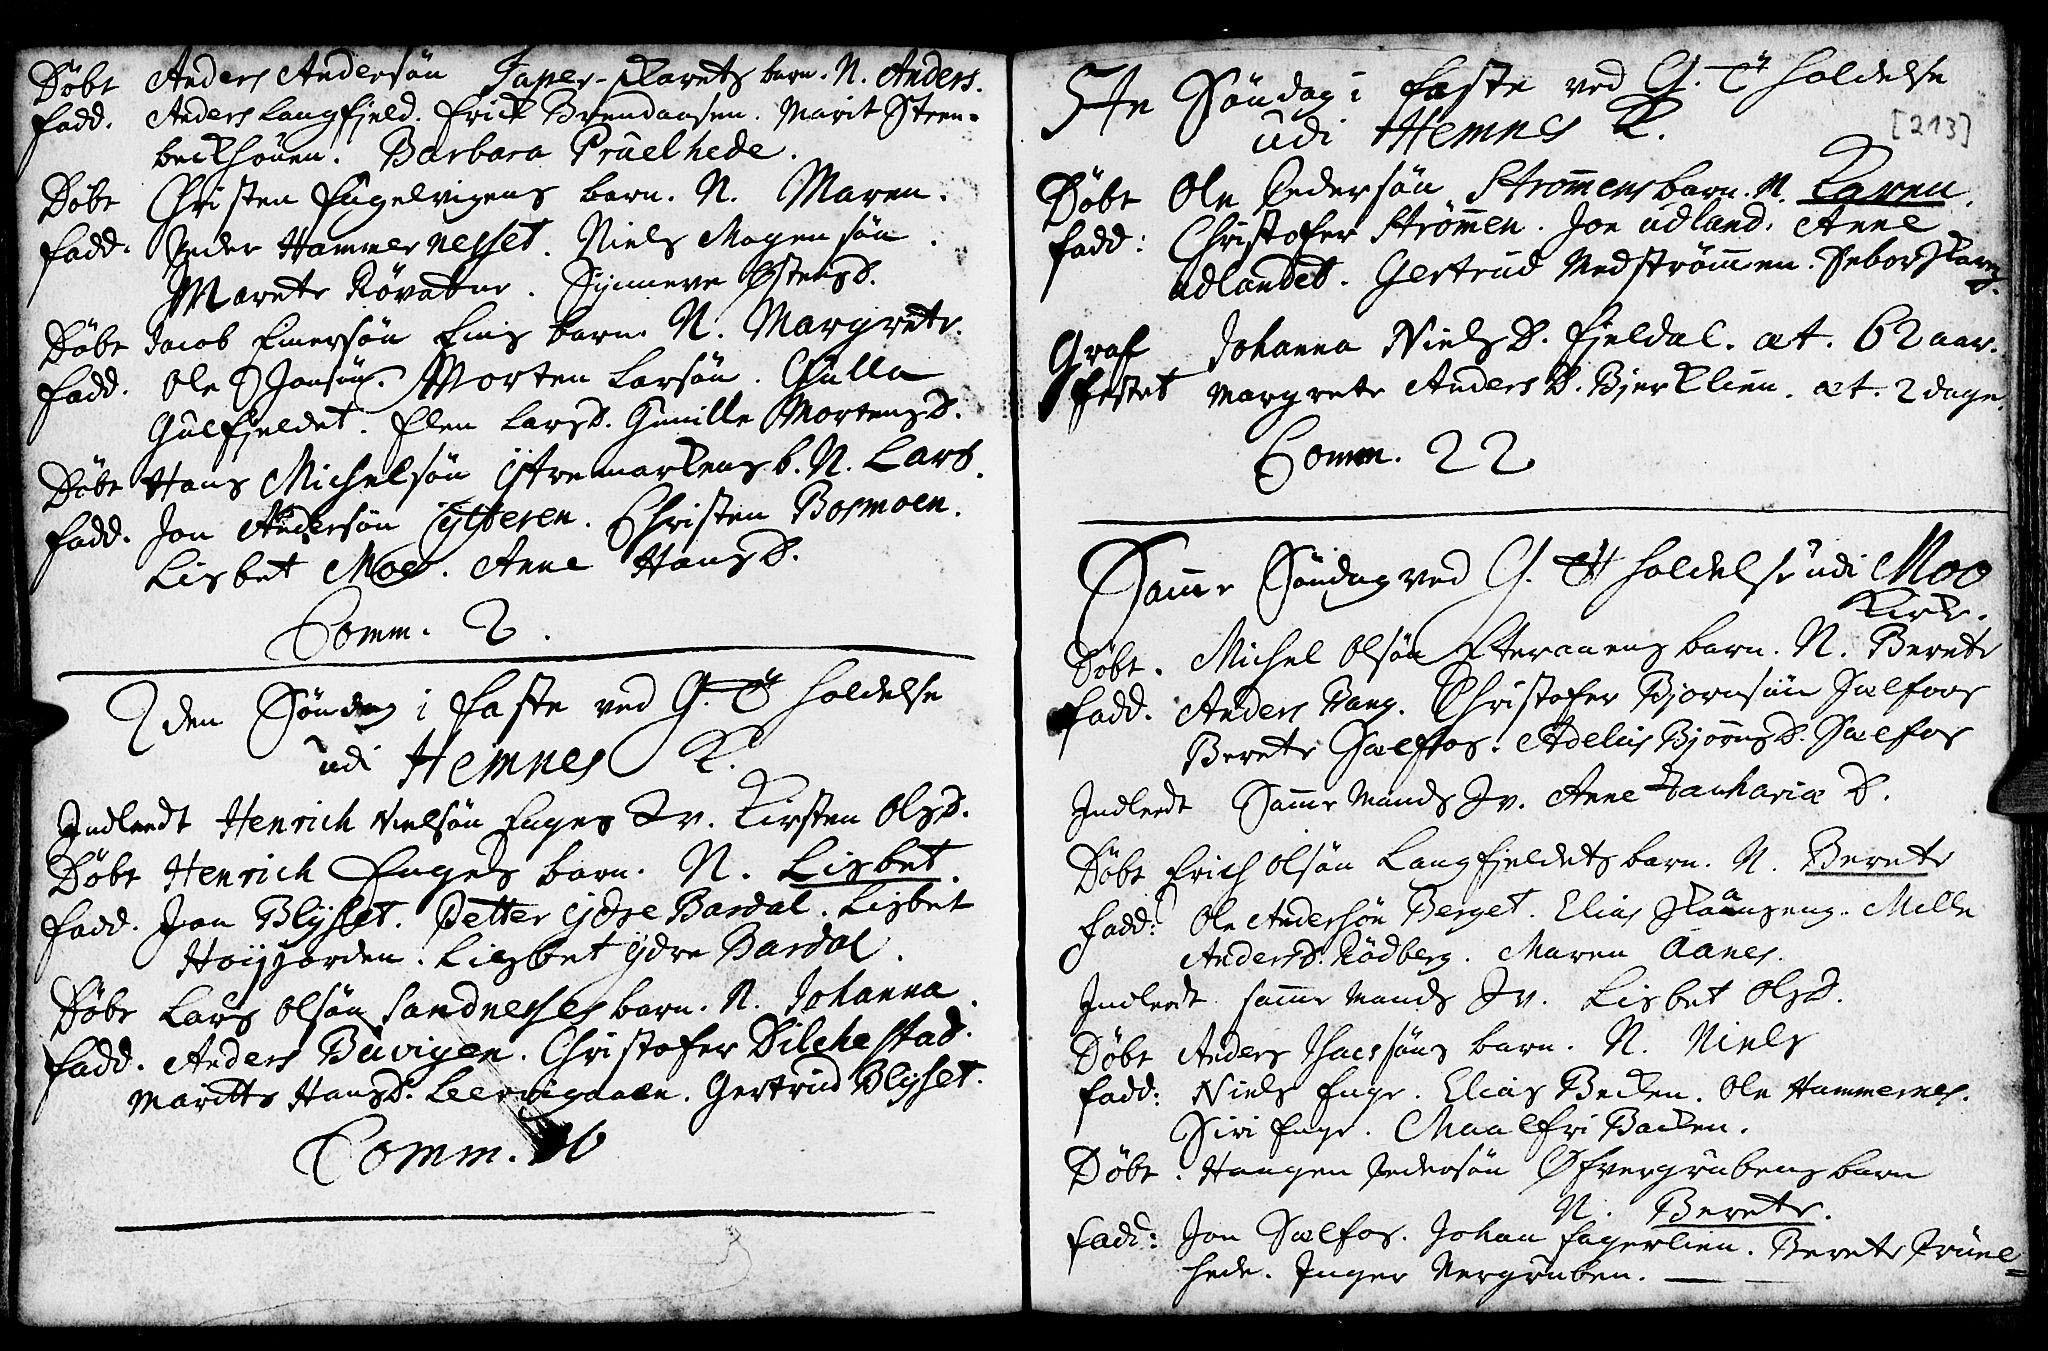 Döbt Anders Andersön Taper-skarets barn. N. Anders.
fadd. Anders Langfjeld. Erick Brendaasen. Marit Steen-
beckhouen. Barbara Prüelhede.
Döbt Christen Engelvigens barn. N. Maren.
fadd. Peder Hammernesset. Niels Mogensön.
Marete Rövatne. Synneve Östensd.
Döbt Jacob Einersön Eng barn N. Margrete.
fadd. Ole Jonsön. Morten Larsön. Gulla
Gulfjeldet. Elen Larsd. Gunille Mortensd.
Döbt Hans Michelsön Ytremarkens b. N. Lars.
fadd. Jon Andersön Ytteren. Christen Bosmoen.
Lisbet Moe. Anne Hansd.
Comm. 2.
2den Söndag i faste ved G. T. holdelse
udi Hemnes K.
Indleedt Henrich Nielsön Enges Qv. Kirsten Olsd.
Döbt Henrich Enges barn. N. Lisbet.
fadd. Jon Blysset. Petter ydre Bardal. Lisbet
Høijgorden. Lisbet ydre Bardal.
Döbt Lars Olsön Sandnesses barn. N. Johanna.
fadd. Anders Büvigen. Christofer Dilchestad.
Maritte Hansd. Leervigaaen. Gertrüd Blysset.
Comm. 16
5te Söndag i faste ved G. T. holdelse
udi Hemnes K.
[213]
Döbt Ole Pedersön Strömmens barn. N. Karen.
fadd: Christofer Strömmen. Jon üdland. Anne
üdlandet. Gertrüd Medströmmen. Debor
Graf Johanna Nielsd. Fjeldal. æt. 62 aar.
festet Margrete Andersd. Bjerklien. æt. 2 dage.
Comm. 22
Samme Söndag ved G. T. holdelse udi Moo
Kirke.
Döbt. Michel Olsön barn. N. Berete
fadd. Anders Bang. Christofer Bjornsön Sælfoos
Berete Sælfos. Adelüs Björnsd. Sælfos
Indleedt Samme Mands Qv. Anne Zachariæ D.
Döbt Erich Olsön Langfjeldets barn. N. Berete
fadd: Ole Andersön Berget. Elias Skamseng. Melle
Andersd. Rödberg. Maren Aanes.
Indleedt samme Mands Qv. Lisbet Olsd.
Döbt Anders Jsacsöns barn. N. Niels
fadd: Niels Enge. Elias Backen. Ole Hammernes.
Siri Enge. Maalfri Backen.
Döbt. Haagen Pedersön Øfvergrübens barn
N. Berete.
fadd: Jon Sælfos. Johan Fagerlien. Berete Prüel=
hede. Inger Nergrüben.